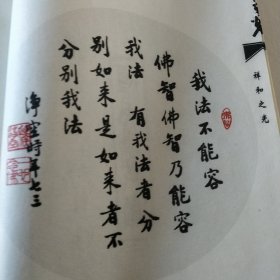 我法不能容
佛智佛智乃能容
我法 有我法者分
别如来是如来者不
分别我法
净空时年七三
祥和之光